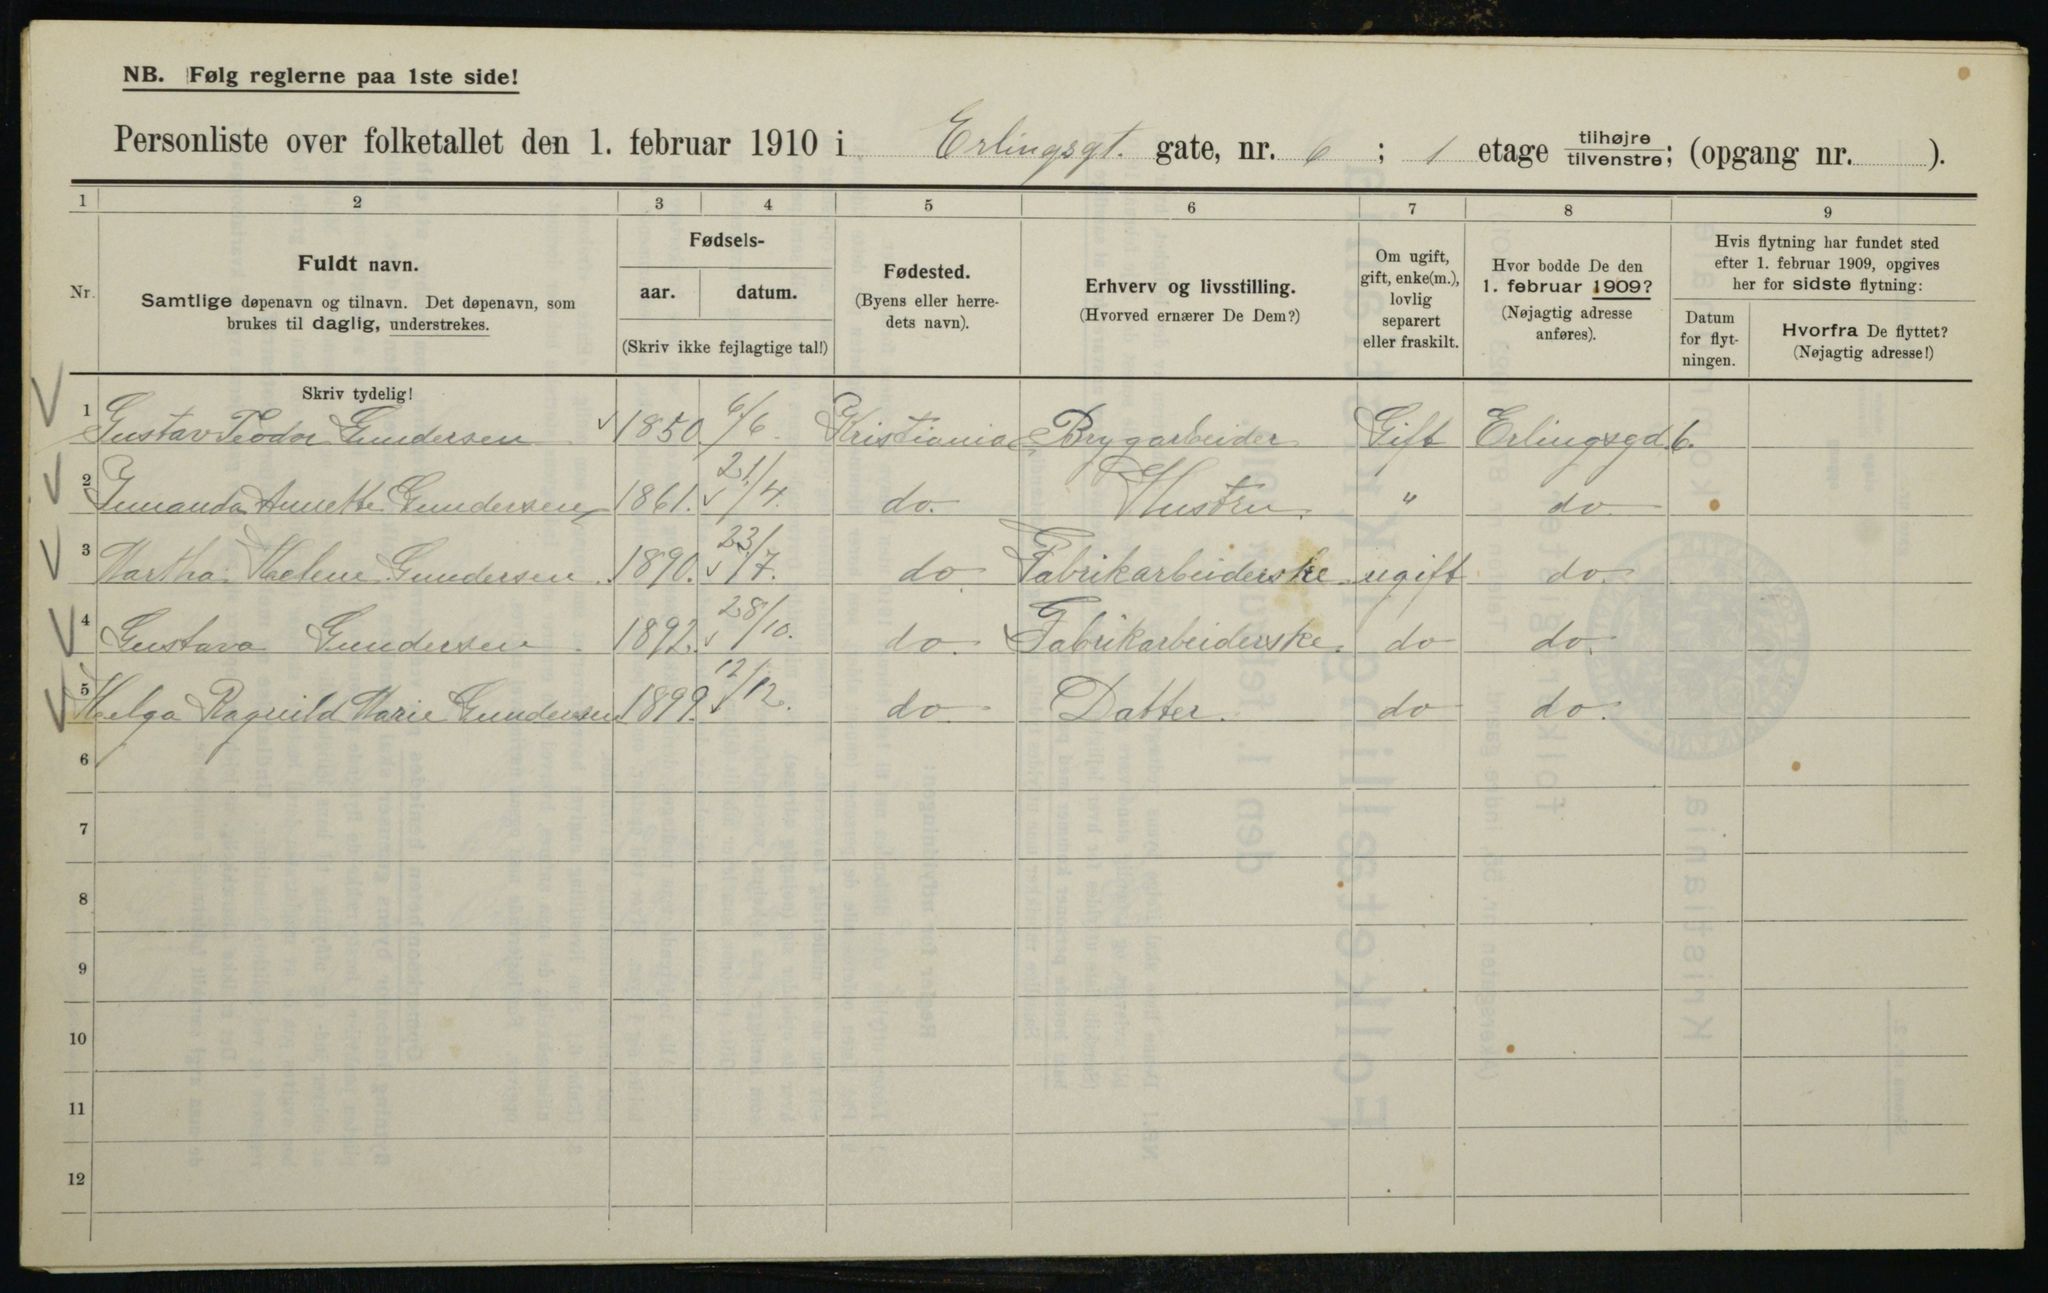 NB. Følg reglerne paa 1ste side!
Personliste over folketallet den 1. februar 1910 i Erlingsgt. gate, nr. 6 ; 1 etage tilhøjre/tilvenstre; (opgang nr. ).
1 2 3 4 5 6 7 8 9
Nr.
Fuldt navn.
Samtlige døpenavn og tilnavn. Det døpenavn, som
brukes til daglig, understrekes.
Fødsels-
aar. datum.
(Skriv ikke fejlagtige tal!)
Fødested.
(Byens eller herre-
dets navn).
Erhverv og livsstilling.
(Hvorved ernærer De Dem?)
Om ugift,
gift, enke(m.),
lovlig
separert
eller fraskilt.
Hvor bodde De den
1. februar 1909?
(Nøjagtig adresse
anføres).
Hvis flytning har fundet sted
efter 1. februar 1909, opgives
her for sidste flytning:
Datum
for flyt-
ningen.
Hvorfra De flyttet?
(Nøjagtig adresse!)
Skriv tydelig!
1 Gustav Teodor Gundersen 1850 6/6 Kristiania Brygarbeider Gift Erlingsgd 6.
2 Annette Gundersen 1861. 21/4. do. Hustru. " do
3 Martha Helene Gundersen 1890. 23/7. do Fabrikarbeiderske ugift do.
4 Gustava Gundersen 1892. 28/10. do. Fabrikarbeiderske do do.
5 Helga Ragnild Marie Gundersen 1899. 12/12. do Datter. do do.
6
7
8
9
10
11
12